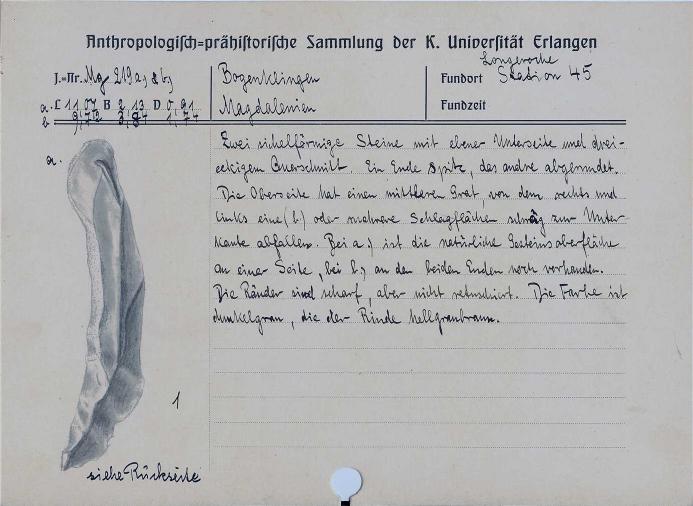 Anthropologisch=prähistorische Sammlung der K. Universität Erlangen
J.=Nr. Mg 219 a, & b,
Bogenklingen
Magdalenien
Longeroche
Fundort Station 45
Fundzeit
a. L 11,07 B 2,13 D 0,91
b 9,73 3,84 1,74
a.
Zwei sichelförmige Steine mit ebener Unterseite und drei-
eckigem Querschnitt. Ein Ende spitz, das andre abgerundet.
Die Oberseite hat einen mittleren Grat, von dem rechts und
links eine (b.) oder mehrere Schlagflächen schräg zur Unter-
kante abfallen. Bei a.) ist die natürliche Gesteinsoberfläche
an einer Seite, bei b.) an den beiden Enden noch vorhanden.
Die Ränder sind scharf, aber nicht retuschiert. Die Farbe ist
dunkelgrau, die der Rinde hellgraubraun.
1
siehe Rückseite